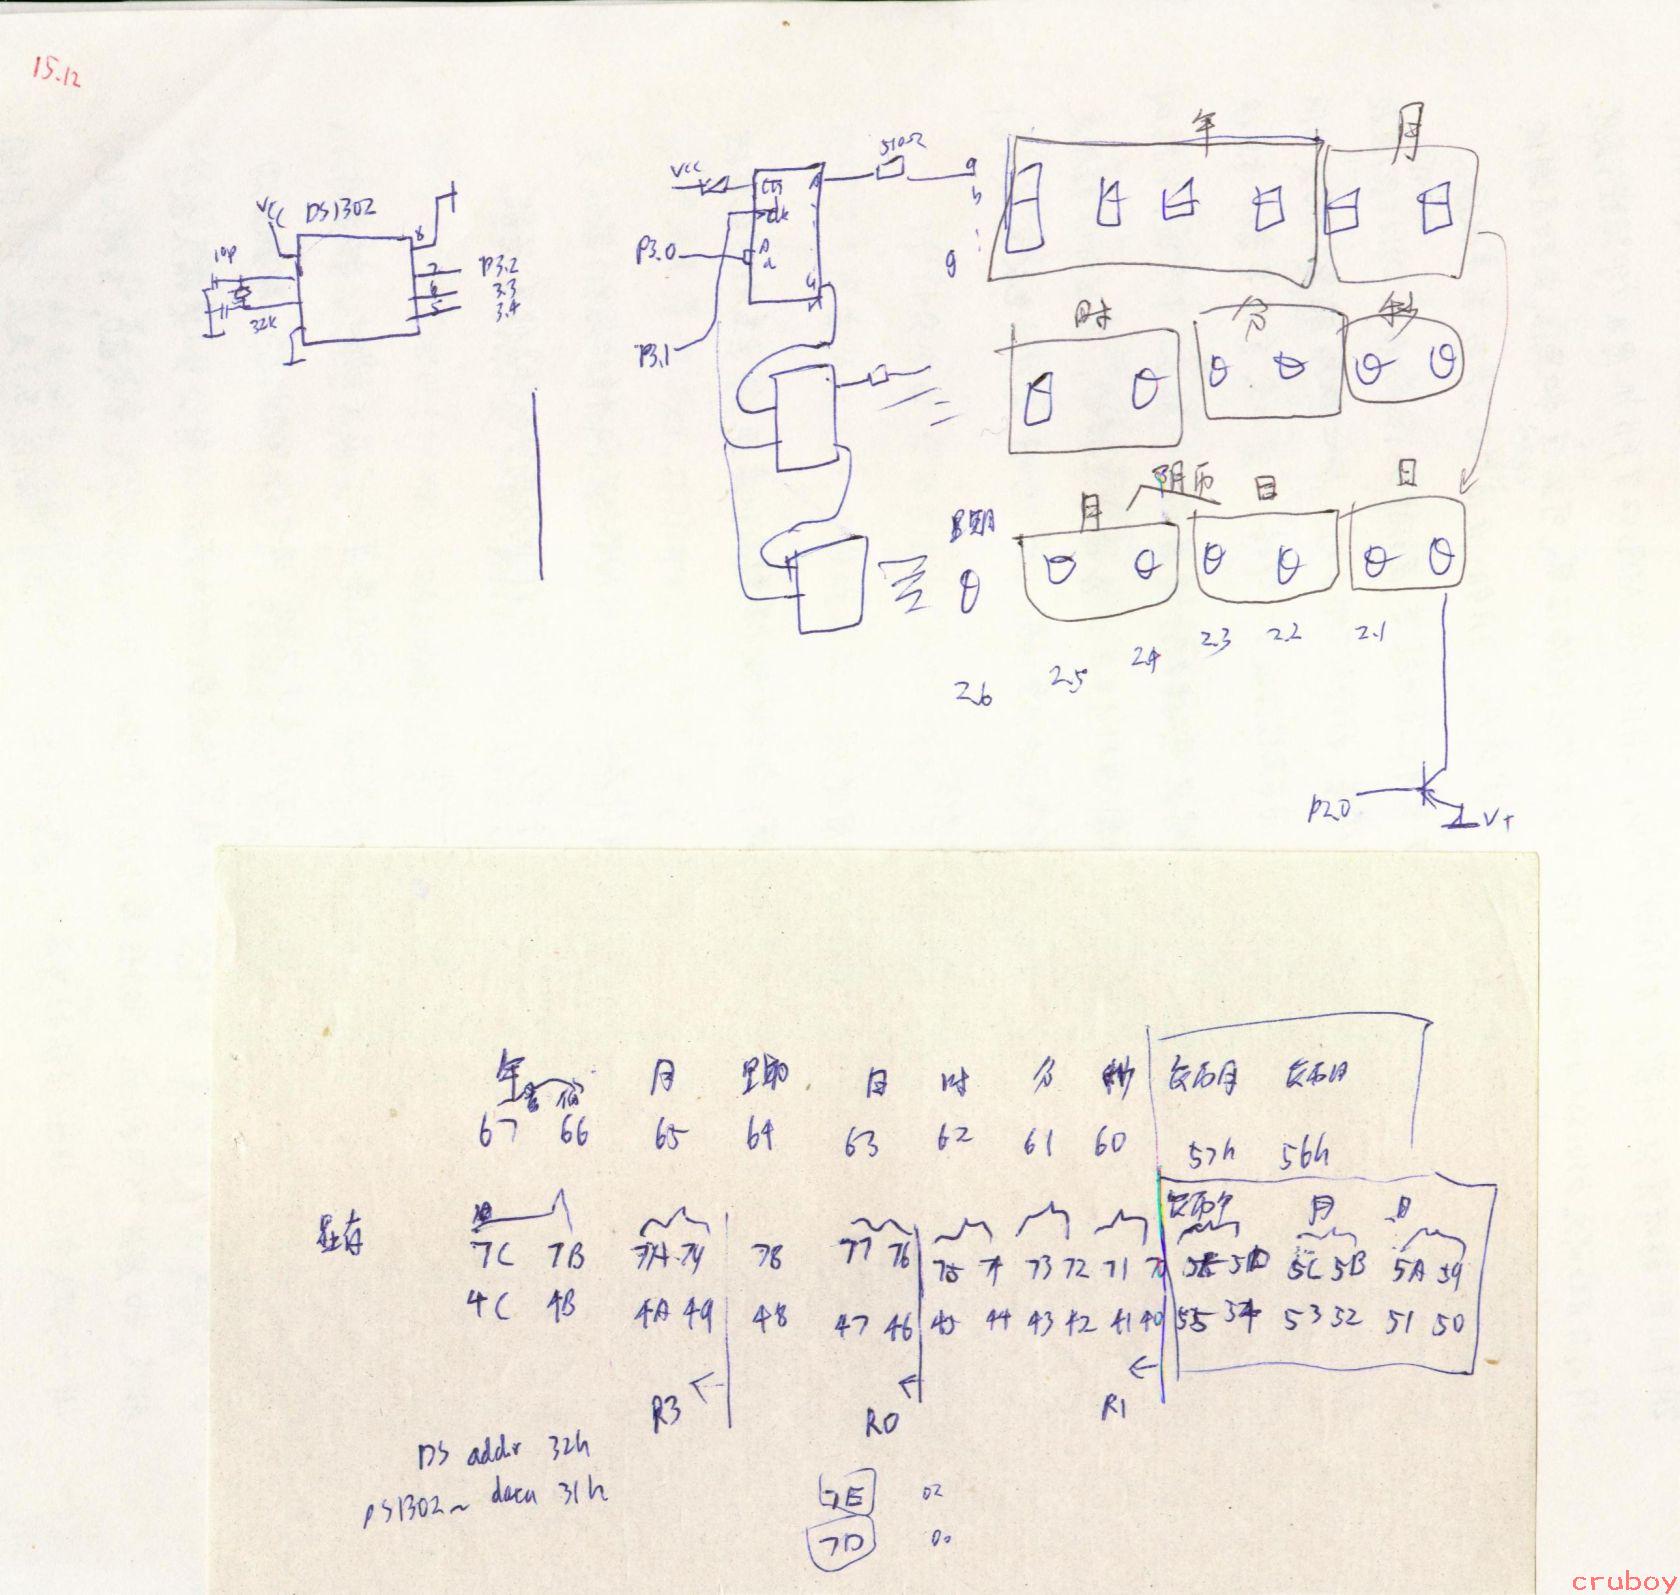 15.12
年 月
VCC DS1302
8
10p
7 P3.2
6 3.3
5 3.4
32K
VCC
510Ω
a
b
g
clk
P3.0
P3.1
时 分 秒
阴历
月 日 日
星期
2.6 2.5 2.4 2.3 2.2 2.1
P2.0
V+
年 月 星期 日 时 分 秒 农历月 农历日
67 66 65 64 63 62 61 60 57h 56h
显存
月 日
7C 7B 7A 79 78 77 76 75 74 73 72 71 70 5D 5C 5B 5A 59
4C 4B 4A 49 48 47 46 45 44 43 42 41 40 55 54 53 52 51 50
R3 R0 R1
DS addr 32h
DS1302~ data 31h
7E 02
7D 00
cruboy